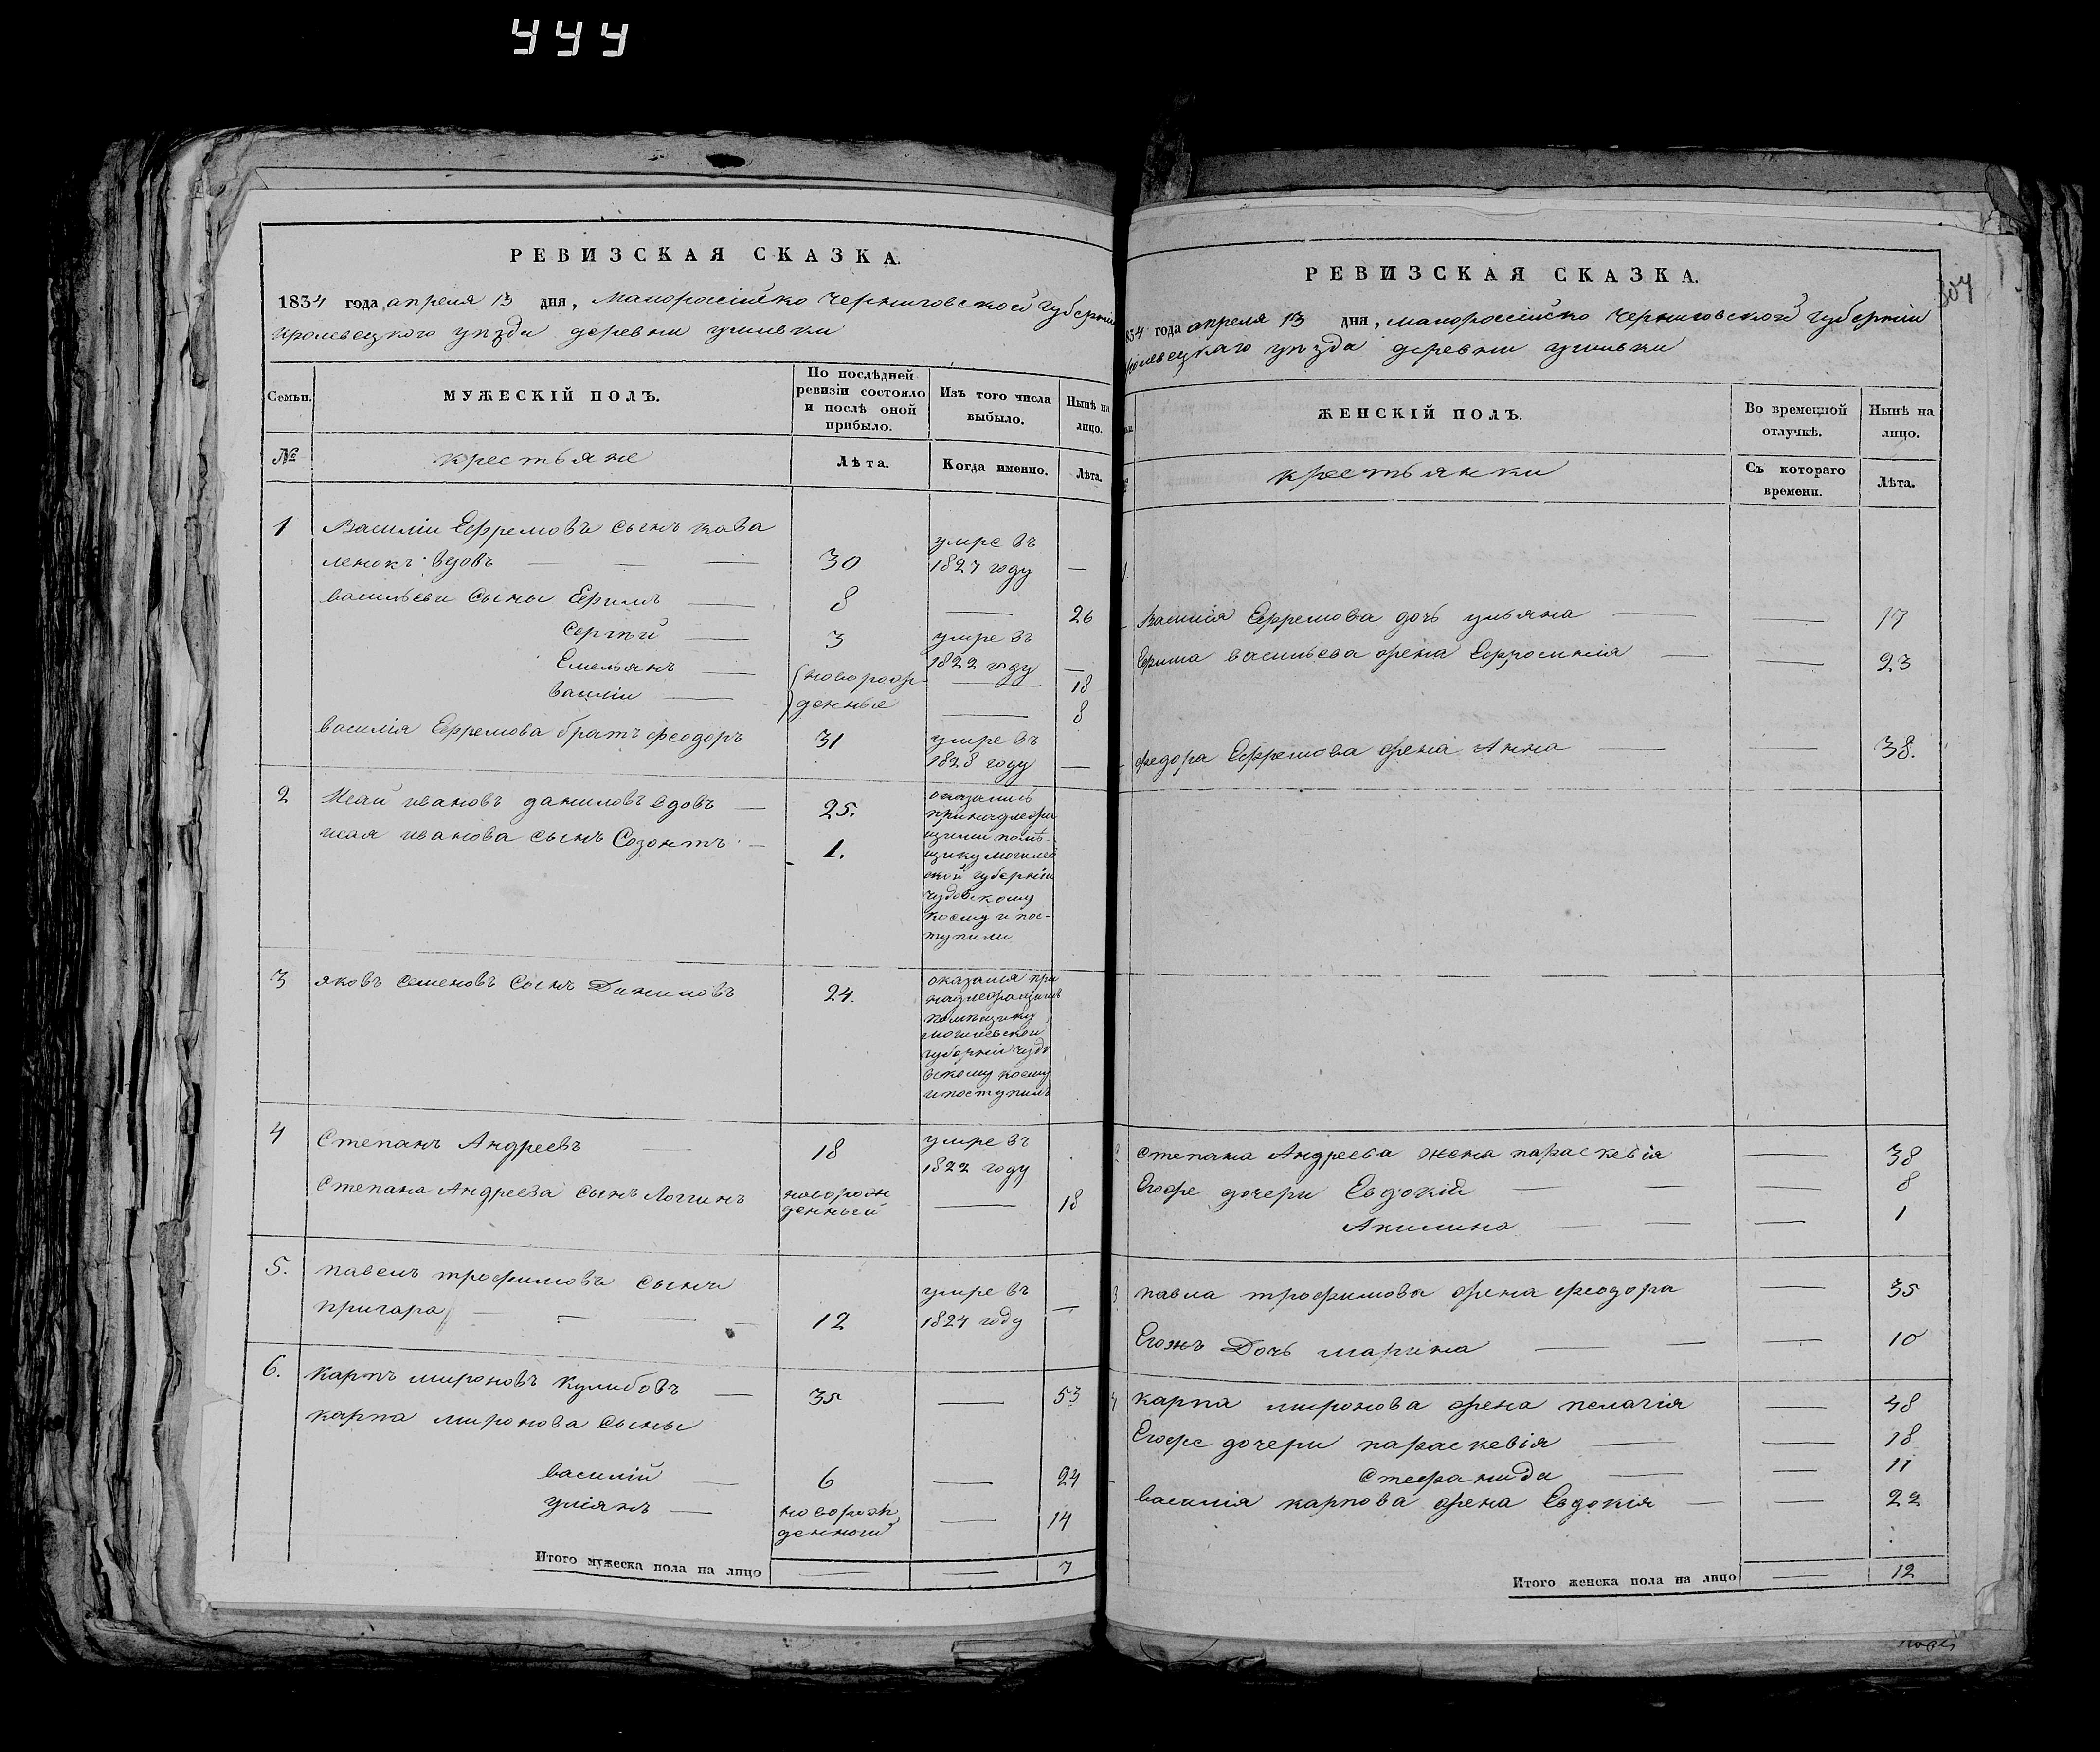 444
РЕВИЗСКАЯ СКАЗКА.
1834 года апреля 13 дня, малоросійско Черниговской Губерніи
кролевецкого уѣзда деревни
Семьи. МУЖЕСКІЙ ПОЛЪ. По послѣдней ревизіи состояло и послѣ оной прибыло. Изъ того числа выбыло. Нынѣ на лицо.
№ крестьяне Лѣта. Когда именно. Лѣта.
1 Василіи Ефремовъ сынъ кова
ленокъ вдовъ — — — 30 умре въ 1827 году —
васильеви сыны Ефимъ — 8 — 26
Сергѣй — 3 умре въ 1822 году —
Емельянъ — (новорож — 18
Василіи — )денные — 8
василія Ефремова братъ феодоръ 31 умре въ 1828 году —
2 Исай ивановъ даниловъ вдовъ — 25. оказались
исая иванова сынъ Созонтъ — 1. принадлежа
щими помѣ-
щику могилев
ской губерніи
чудовскому
коему и пос-
тупили
3 яковъ семеновъ сынъ Даниловъ 24. оказался при
надлежащимъ
помѣщику
могилевской
губерніи чудо
вскому коему
и поступилъ
4 Степанъ Андреевъ — 18 умре въ 1822 году
Степана Андреева сынъ Логгинъ новорож
денный — 18
5. павелъ трофимовъ сынъ
пригара — — — — 12 умре въ 1824 году —
6. Карпъ мироновъ Кулибовъ — 35 — 53
карпа миронова сыны
василій — 6 — 24
уліянъ — новорож
денной — 14
Итого мужеска пола на лицо — — 7
РЕВИЗСКАЯ СКАЗКА.
834 года апреля 13 дня, малоросійско Черниговской Губерніи
ролевецкаго уѣзда деревни
ЖЕНСКІЙ ПОЛЪ. Во временной отлучкѣ. Нынѣ на лицо.
крестьянки Съ котораго времени. Лѣта.
1.
Василія Ефремова дочь ульяна — — 17
Ефима васильева жена Ефросинія — — 23
федора Ефремова жена Анна — — 38.
2 степана Андреева жена параскевія — 38
Егоже дочери Евдокія — — — 8
Акилина — — — 1
3 павла трофимова жена феодора — 35
Егожъ Дочь марина — — — 10
4 карпа миронова жена пелагія — 48
Егоже дочери параскевія — — 18
Стефанида — — 11
василія карпова жена Евдокія — — 22
Итого женска пола на лицо — 12